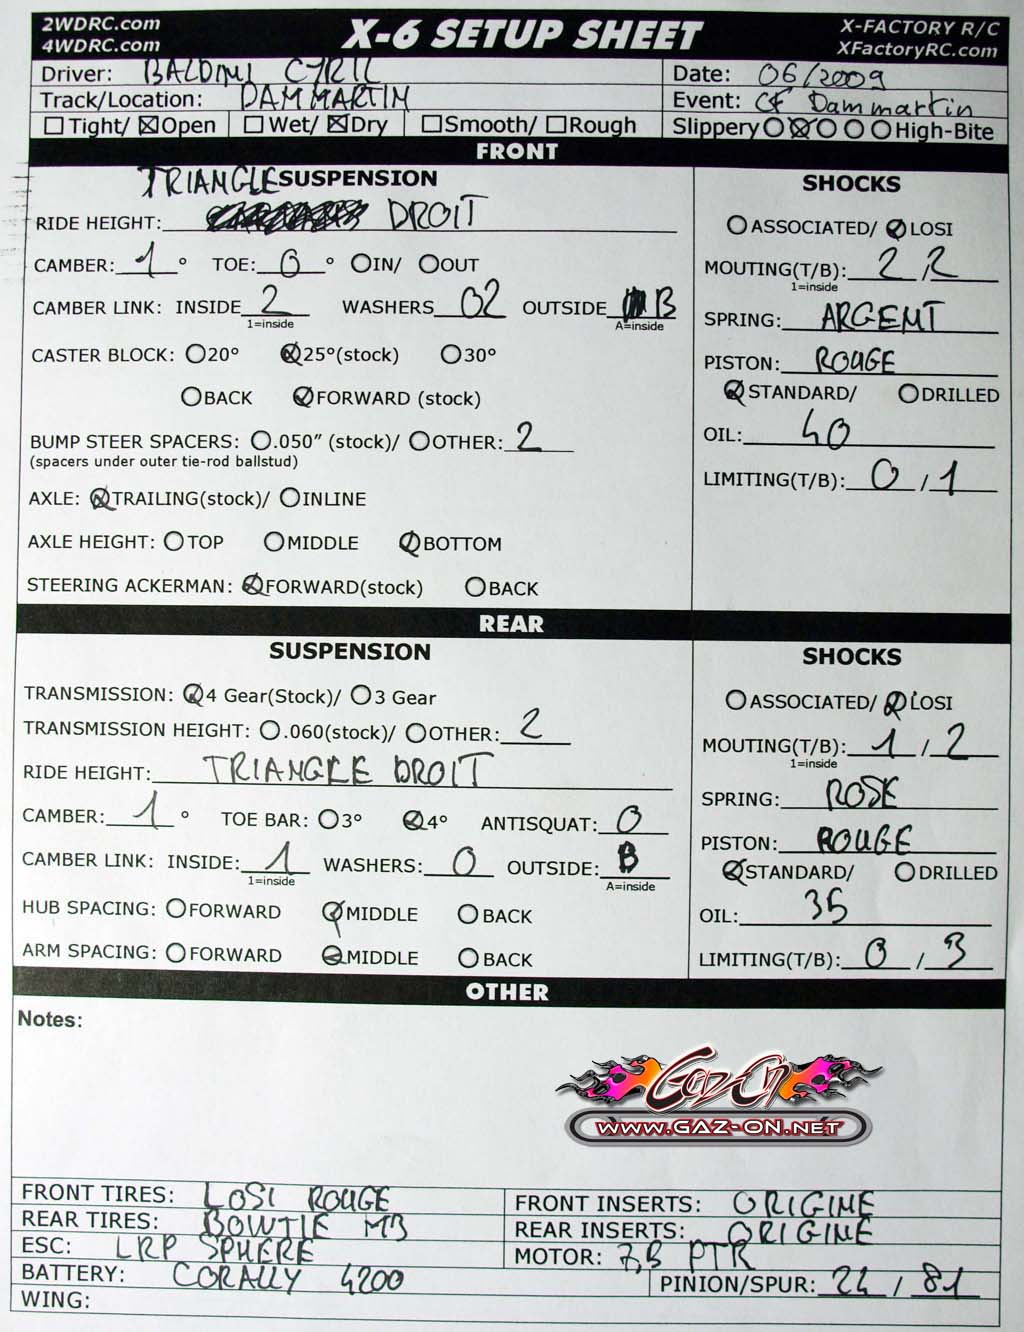 2WDRC.com
4WDRC.com
X-6 SETUP SHEET
X-FACTORY R/C
XFactoryRC.com
Driver: BALDINI CYRIL
Date: 06/2009
Track/Location: DAMMARTIN
Event: CF Dammartin
Tight/ Open Wet/ Dry Smooth/ Rough Slippery High-Bite
FRONT
TRIANGLE SUSPENSION
RIDE HEIGHT: DROIT
CAMBER: 1 ° TOE: 0 ° IN/ OUT
CAMBER LINK: INSIDE 2 WASHERS 02 OUTSIDE B
1=inside A=inside
CASTER BLOCK: 20° 25°(stock) 30°
BACK FORWARD (stock)
BUMP STEER SPACERS: .050" (stock)/ OTHER: 2
(spacers under outer tie-rod ballstud)
AXLE: TRAILING(stock)/ INLINE
AXLE HEIGHT: TOP MIDDLE BOTTOM
STEERING ACKERMAN: FORWARD(stock) BACK
SHOCKS
ASSOCIATED/ LOSI
MOUTING(T/B): 2 / 2
1=inside
SPRING: ARGENT
PISTON: ROUGE
STANDARD/ DRILLED
OIL: 40
LIMITING(T/B): 0 / 1
REAR
SUSPENSION
TRANSMISSION: 4 Gear(Stock)/ 3 Gear
TRANSMISSION HEIGHT: .060(stock)/ OTHER: 2
RIDE HEIGHT: TRIANGLE DROIT
CAMBER: 1 ° TOE BAR: 3° 4° ANTISQUAT: 0
CAMBER LINK: INSIDE: 1 WASHERS: 0 OUTSIDE: B
1=inside A=inside
HUB SPACING: FORWARD MIDDLE BACK
ARM SPACING: FORWARD MIDDLE BACK
SHOCKS
ASSOCIATED/ LOSI
MOUTING(T/B): 1 / 2
1=inside
SPRING: ROSE
PISTON: ROUGE
STANDARD/ DRILLED
OIL: 35
LIMITING(T/B): 0 / 3
OTHER
Notes:
Gaz-On
WWW.GAZ-ON.NET
FRONT TIRES: LOSI ROUGE
FRONT INSERTS: ORIGINE
REAR TIRES: BOWTIE M3
REAR INSERTS: ORIGINE
ESC: LRP SPHERE
MOTOR: PTR
BATTERY: CORALLY 4200
PINION/SPUR: 24 / 81
WING: